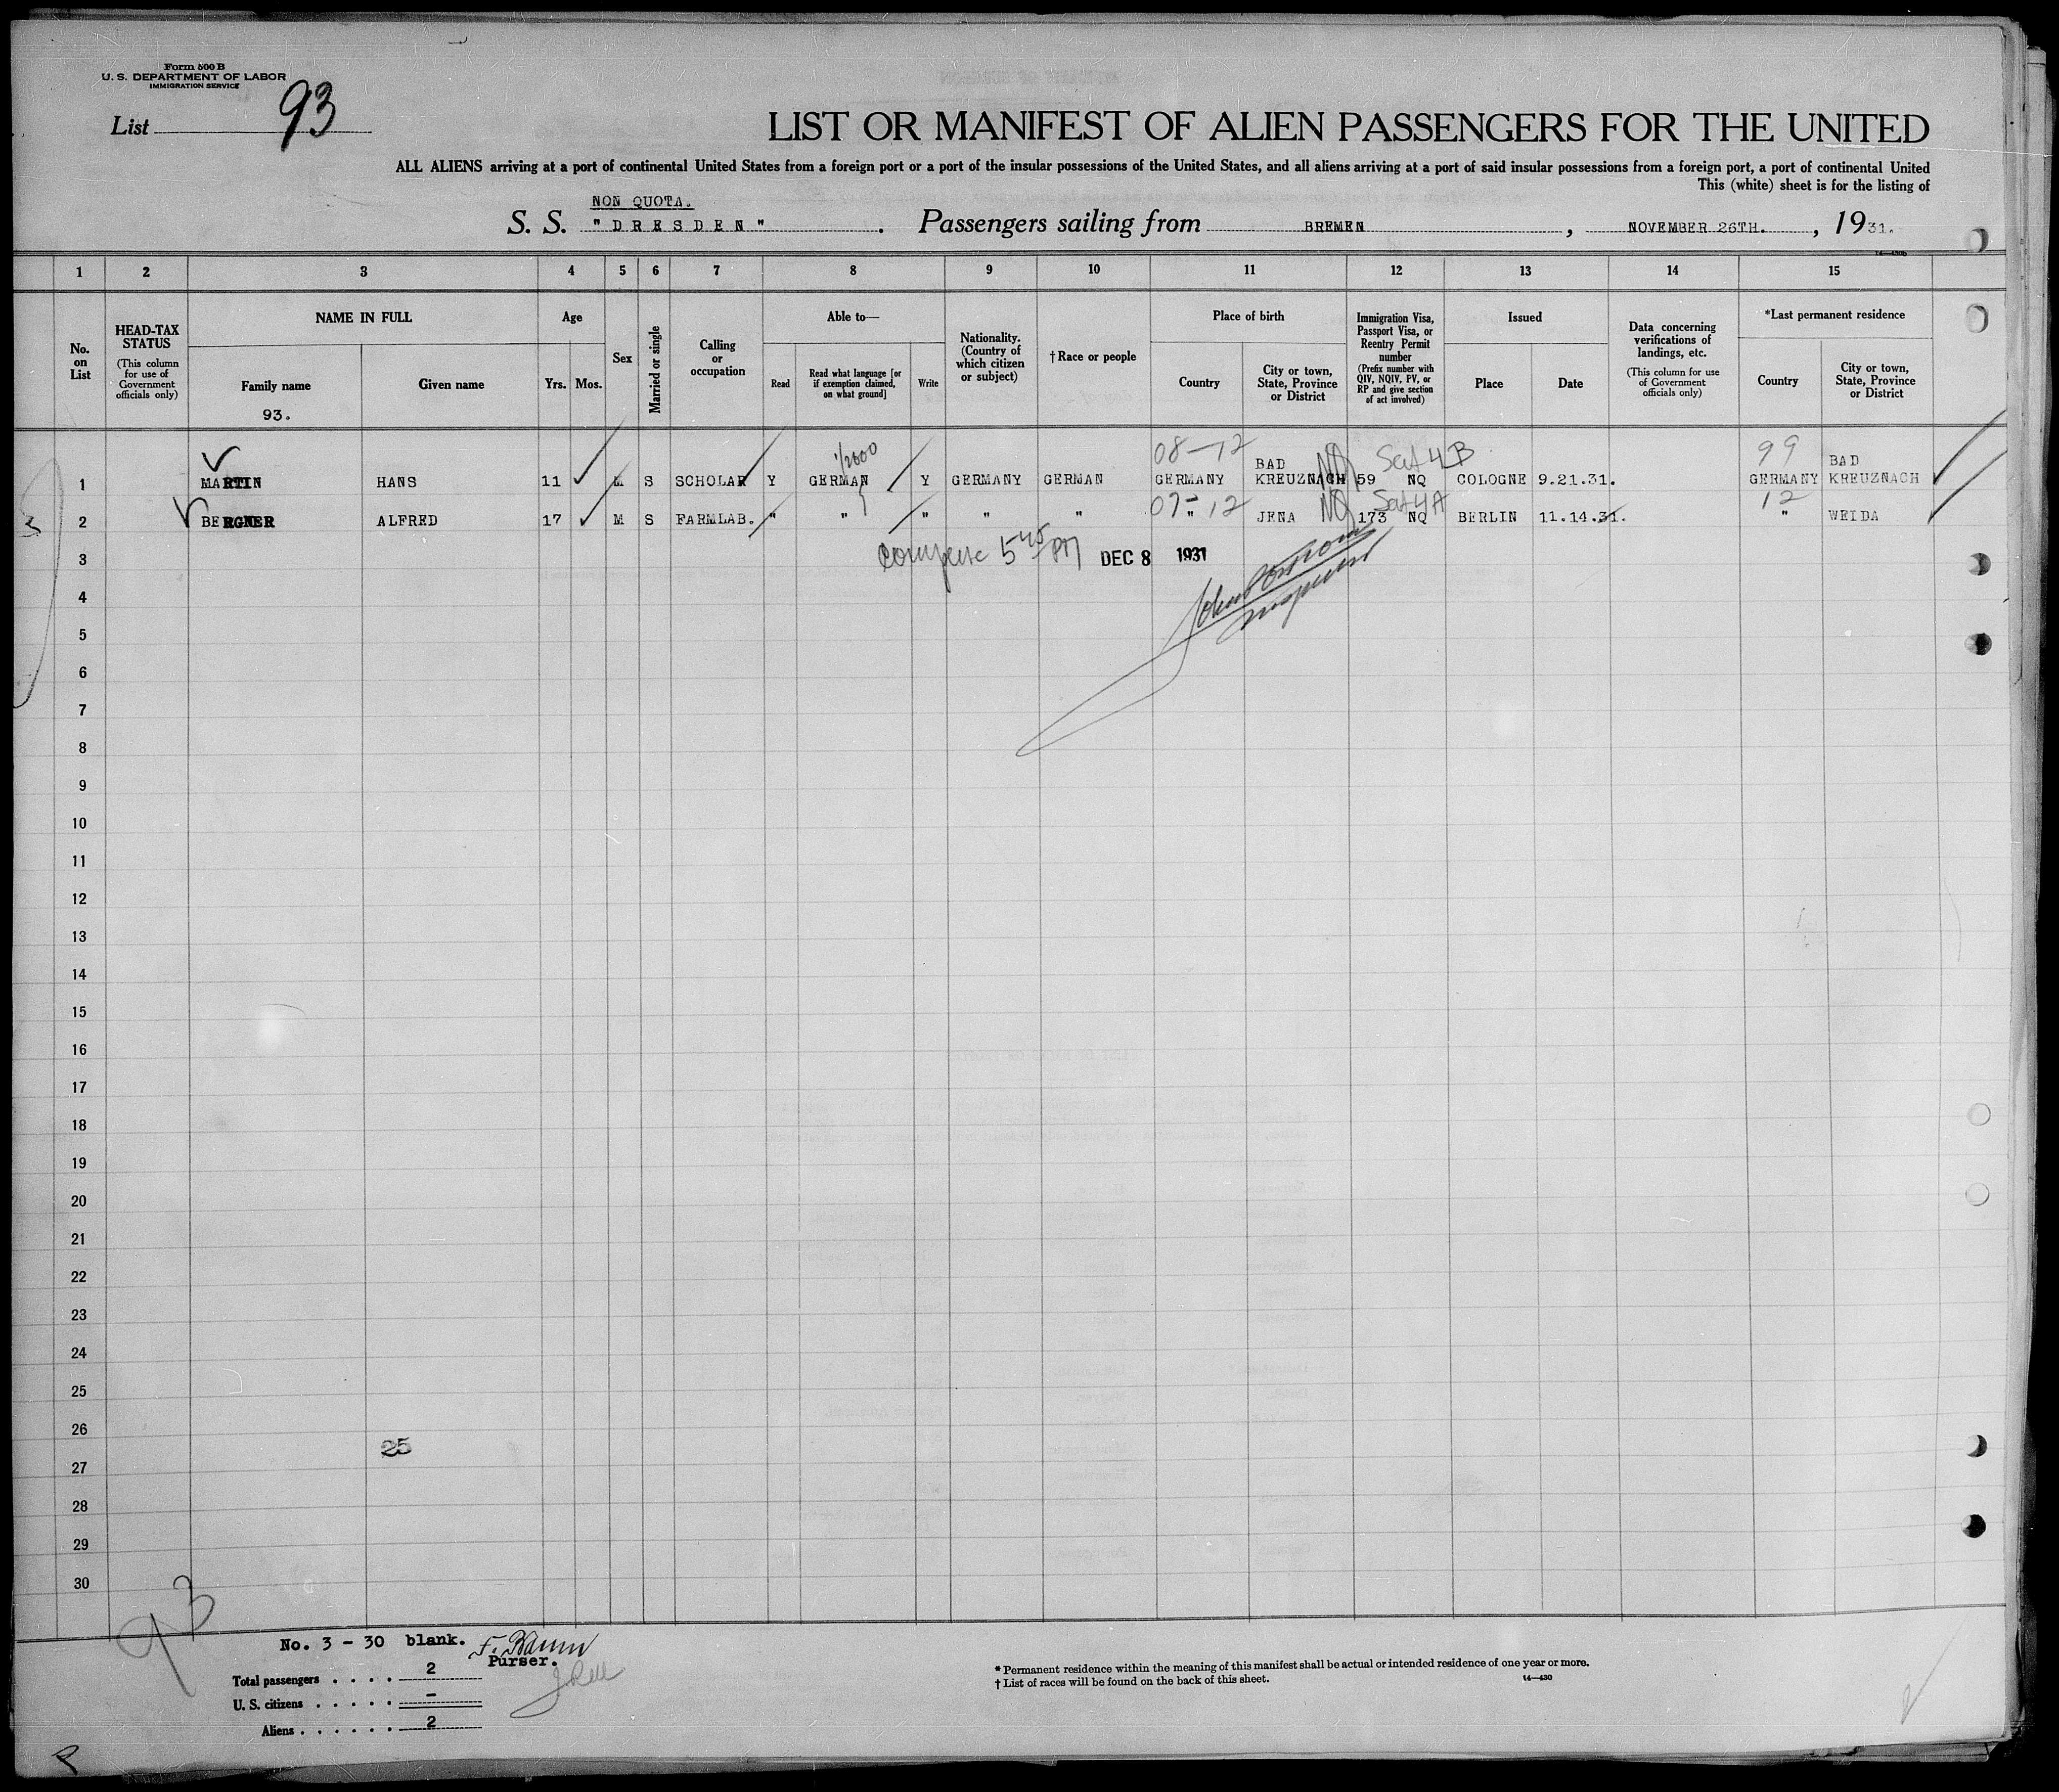 Form 500 B
U. S. DEPARTMENT OF LABOR
IMMIGRATION SERVICE
List 93
LIST OR MANIFEST OF ALIEN PASSENGERS FOR THE UNITED
ALL ALIENS arriving at a port of continental United States from a foreign port or a port of the insular possessions of the United States, and all aliens arriving at a port of said insular possessions from a foreign port, a port of continental United
This (white) sheet is for the listing of
NON QUOTA.
S. S. "DRESDEN". Passengers sailing from BREMEN, NOVEMBER 26TH., 1931.
1 2 3 4 5 6 7 8 9 10 11 12 13 14 15
No. on List
HEAD-TAX STATUS
(This column for use of Government officials only)
NAME IN FULL
Family name
93.
Given name
Age
Yrs. Mos.
Sex
Married or single
Calling or occupation
Able to—
Read
Read what language [or if exemption claimed, on what ground]
Write
Nationality. (Country of which citizen or subject)
†Race or people
Place of birth
Country
City or town, State, Province or District
Immigration Visa, Passport Visa, or Reentry Permit number
(Prefix number with QIV, NQIV, PV, or RP and give section of act involved)
Issued
Place
Date
Data concerning verifications of landings, etc.
(This column for use of Government officials only)
*Last permanent residence
Country
City or town, State, Province or District
08-12 NQ Sect 4B 99
1 MARTIN HANS 11 M S SCHOLAR Y GERMAN Y GERMANY GERMAN GERMANY BAD KREUZNACH 59 NQ COLOGNE 9.21.31. GERMANY BAD KREUZNACH
07-12 NQ Sect 4A 12
2 BERGNER ALFRED 17 M S FARMLAB. " " " " " " JENA 173 NQ BERLIN 11.14.31. " WEIDA
3 5 45 PM DEC 8 1931
4
5
Inspector
6
7
8
9
10
11
12
13
14
15
16
17
18
19
20
21
22
23
24
25
26
25
27
28
29
30
93
No. 3 - 30 blank.
Purser.
Total passengers . . . . . 2
U. S. citizens . . . . . –
Aliens . . . . . . 2
* Permanent residence within the meaning of this manifest shall be actual or intended residence of one year or more.
† List of races will be found on the back of this sheet.
14—430